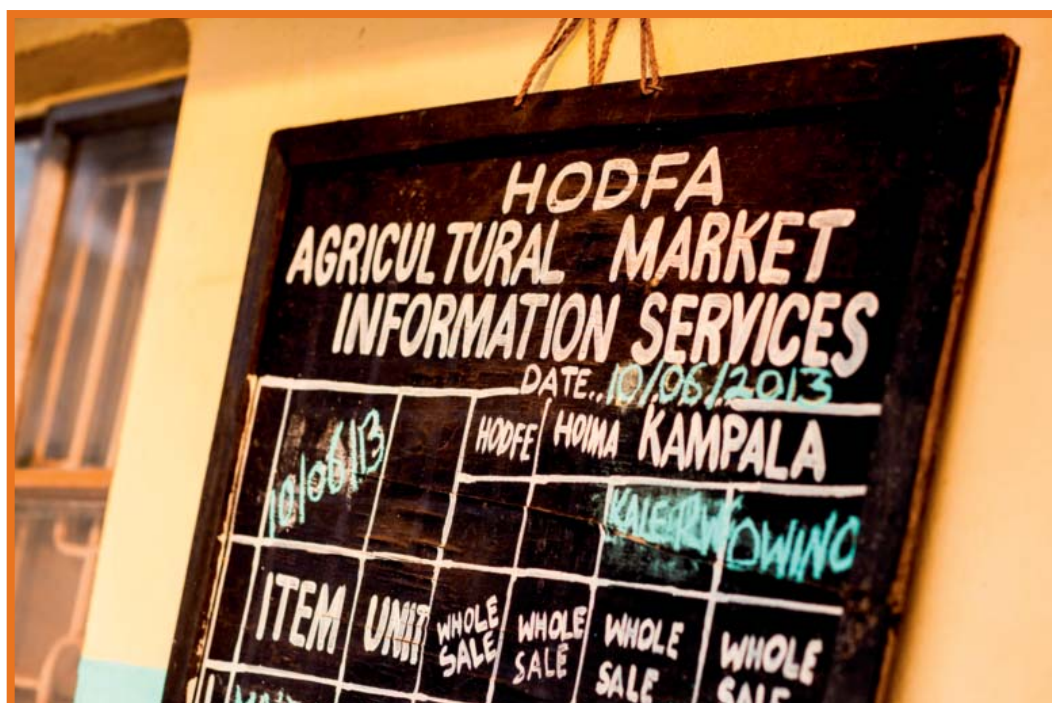 HODFA
AGRICULTURAL MARKET
INFORMATION SERVICES
DATE..10/06/2013
10/06/13
HODFE HOIMA KAMPALA
OWINO
ITEM UNIT WHOLE SALE WHOLE SALE WHOLE SALE WHOLE SALE